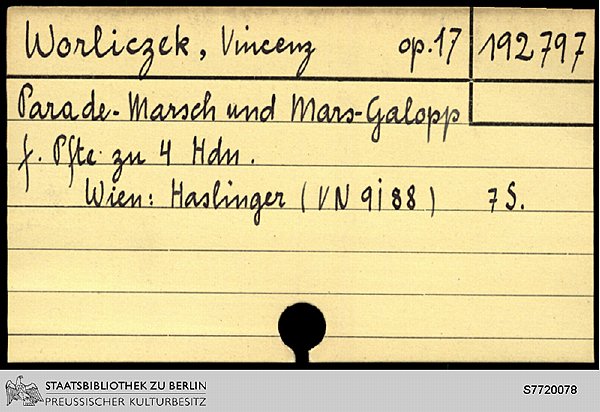 Worliczek, Vincenz op. 17 192797
Parade-Marsch und Mars-Galopp
f. Pfte zu 4 Hdn.
Wien: Haslinger (VN 9188) 7 S.
STAATSBIBLIOTHEK ZU BERLIN
PREUSSISCHER KULTURBESITZ
S7720078